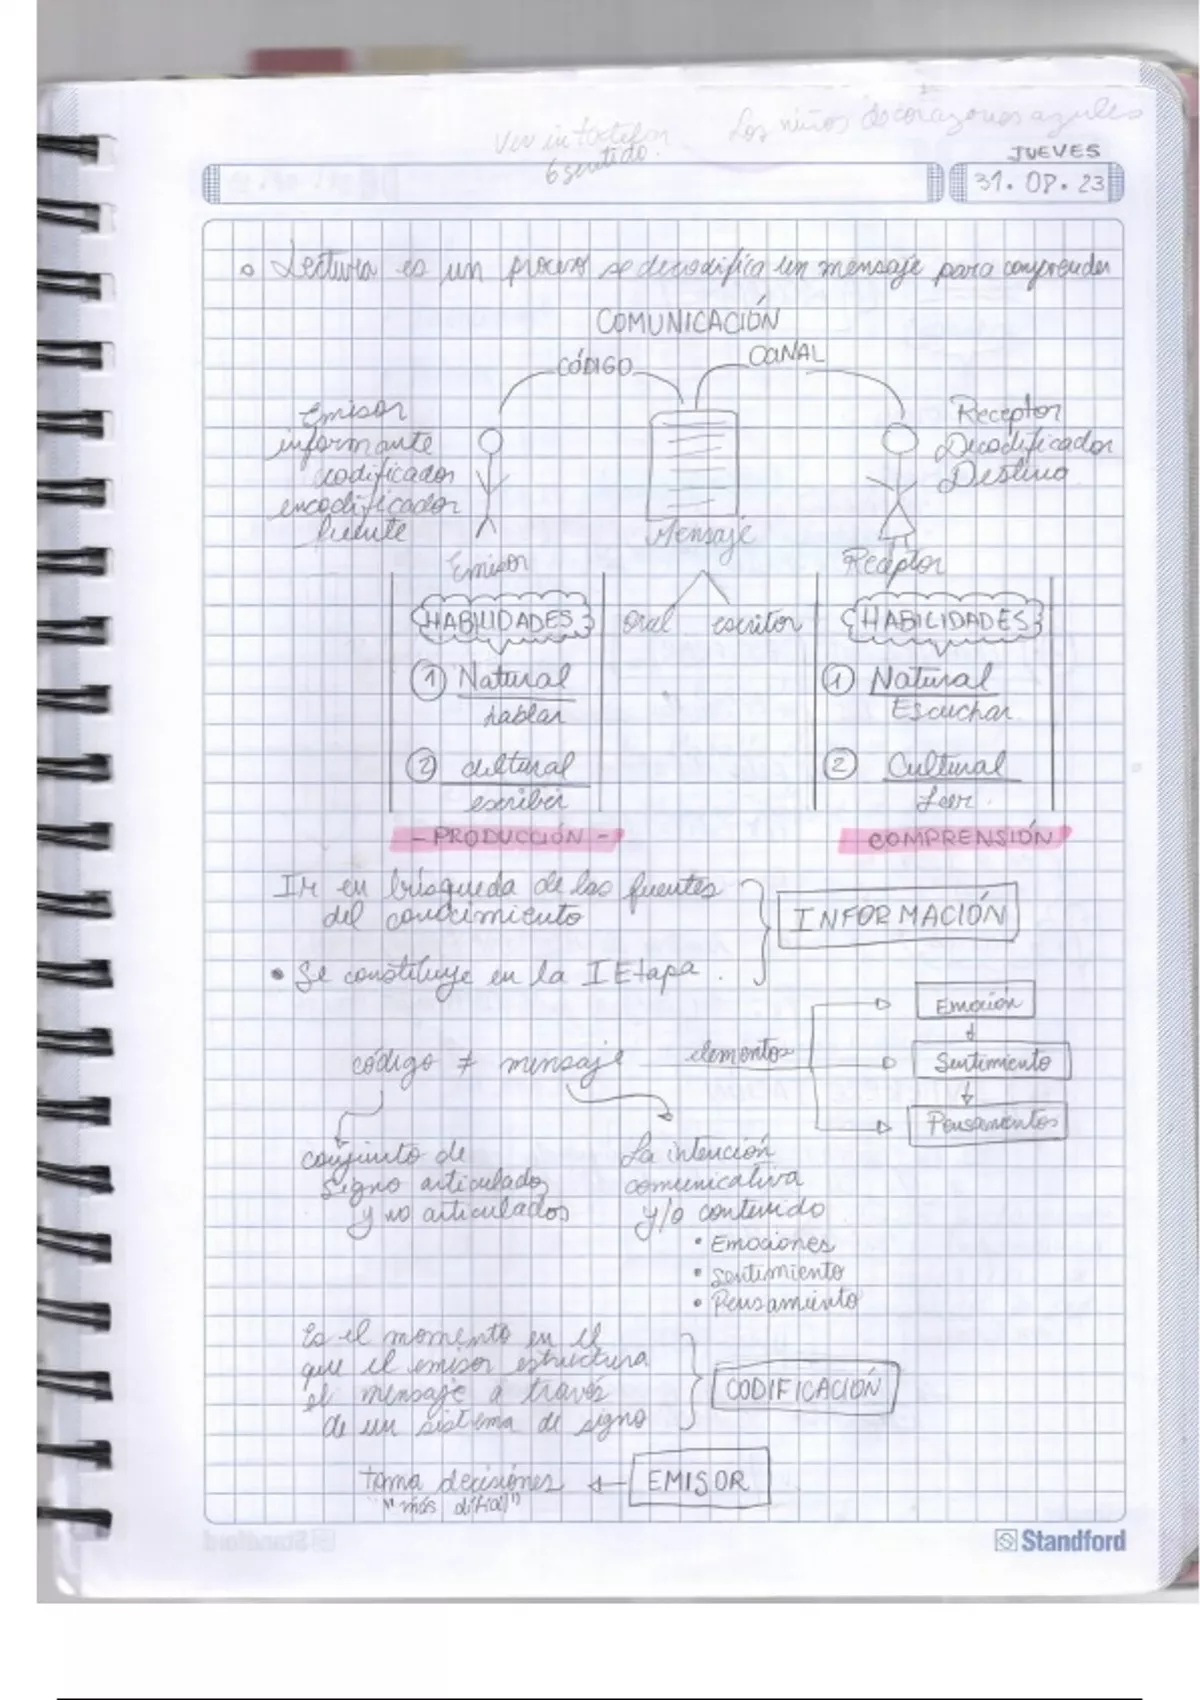 Los niños de corazones azules
Ver
6 sentido.
JUEVES
31. 08. 23
Lectura es un proceso se decodifica un mensaje para comprender
COMUNICACIÓN
CÓDIGO
CANAL
Emisor
informante
codificador
encodificador
fuente
Receptor
Decodificador
Destino
Mensaje
Emisor
Receptor
HABILIDADES
oral escritor
HABILIDADES
1 Natural
hablar
1 Natural
Escuchar
2 cultural
escribir
2 Cultural
Leer.
- PRODUCCIÓN -
COMPRENSIÓN
Ir en búsqueda de las fuentes
del conocimiento
INFORMACIÓN
• Se constituye en la I Etapa.
código ≠ mensaje elementos
Emoción
Sentimiento
Pensamientos
conjunto de
signo articulados
y no articulados
La intención
comunicativa
y/o contenido
• Emociones
• Sentimiento
• Pensamiento
Es el momento en el
que el emisor estructura
el mensaje a través
de un sistema de signo
CODIFICACIÓN
toma decisiones
"más difícil"
EMISOR
Standford